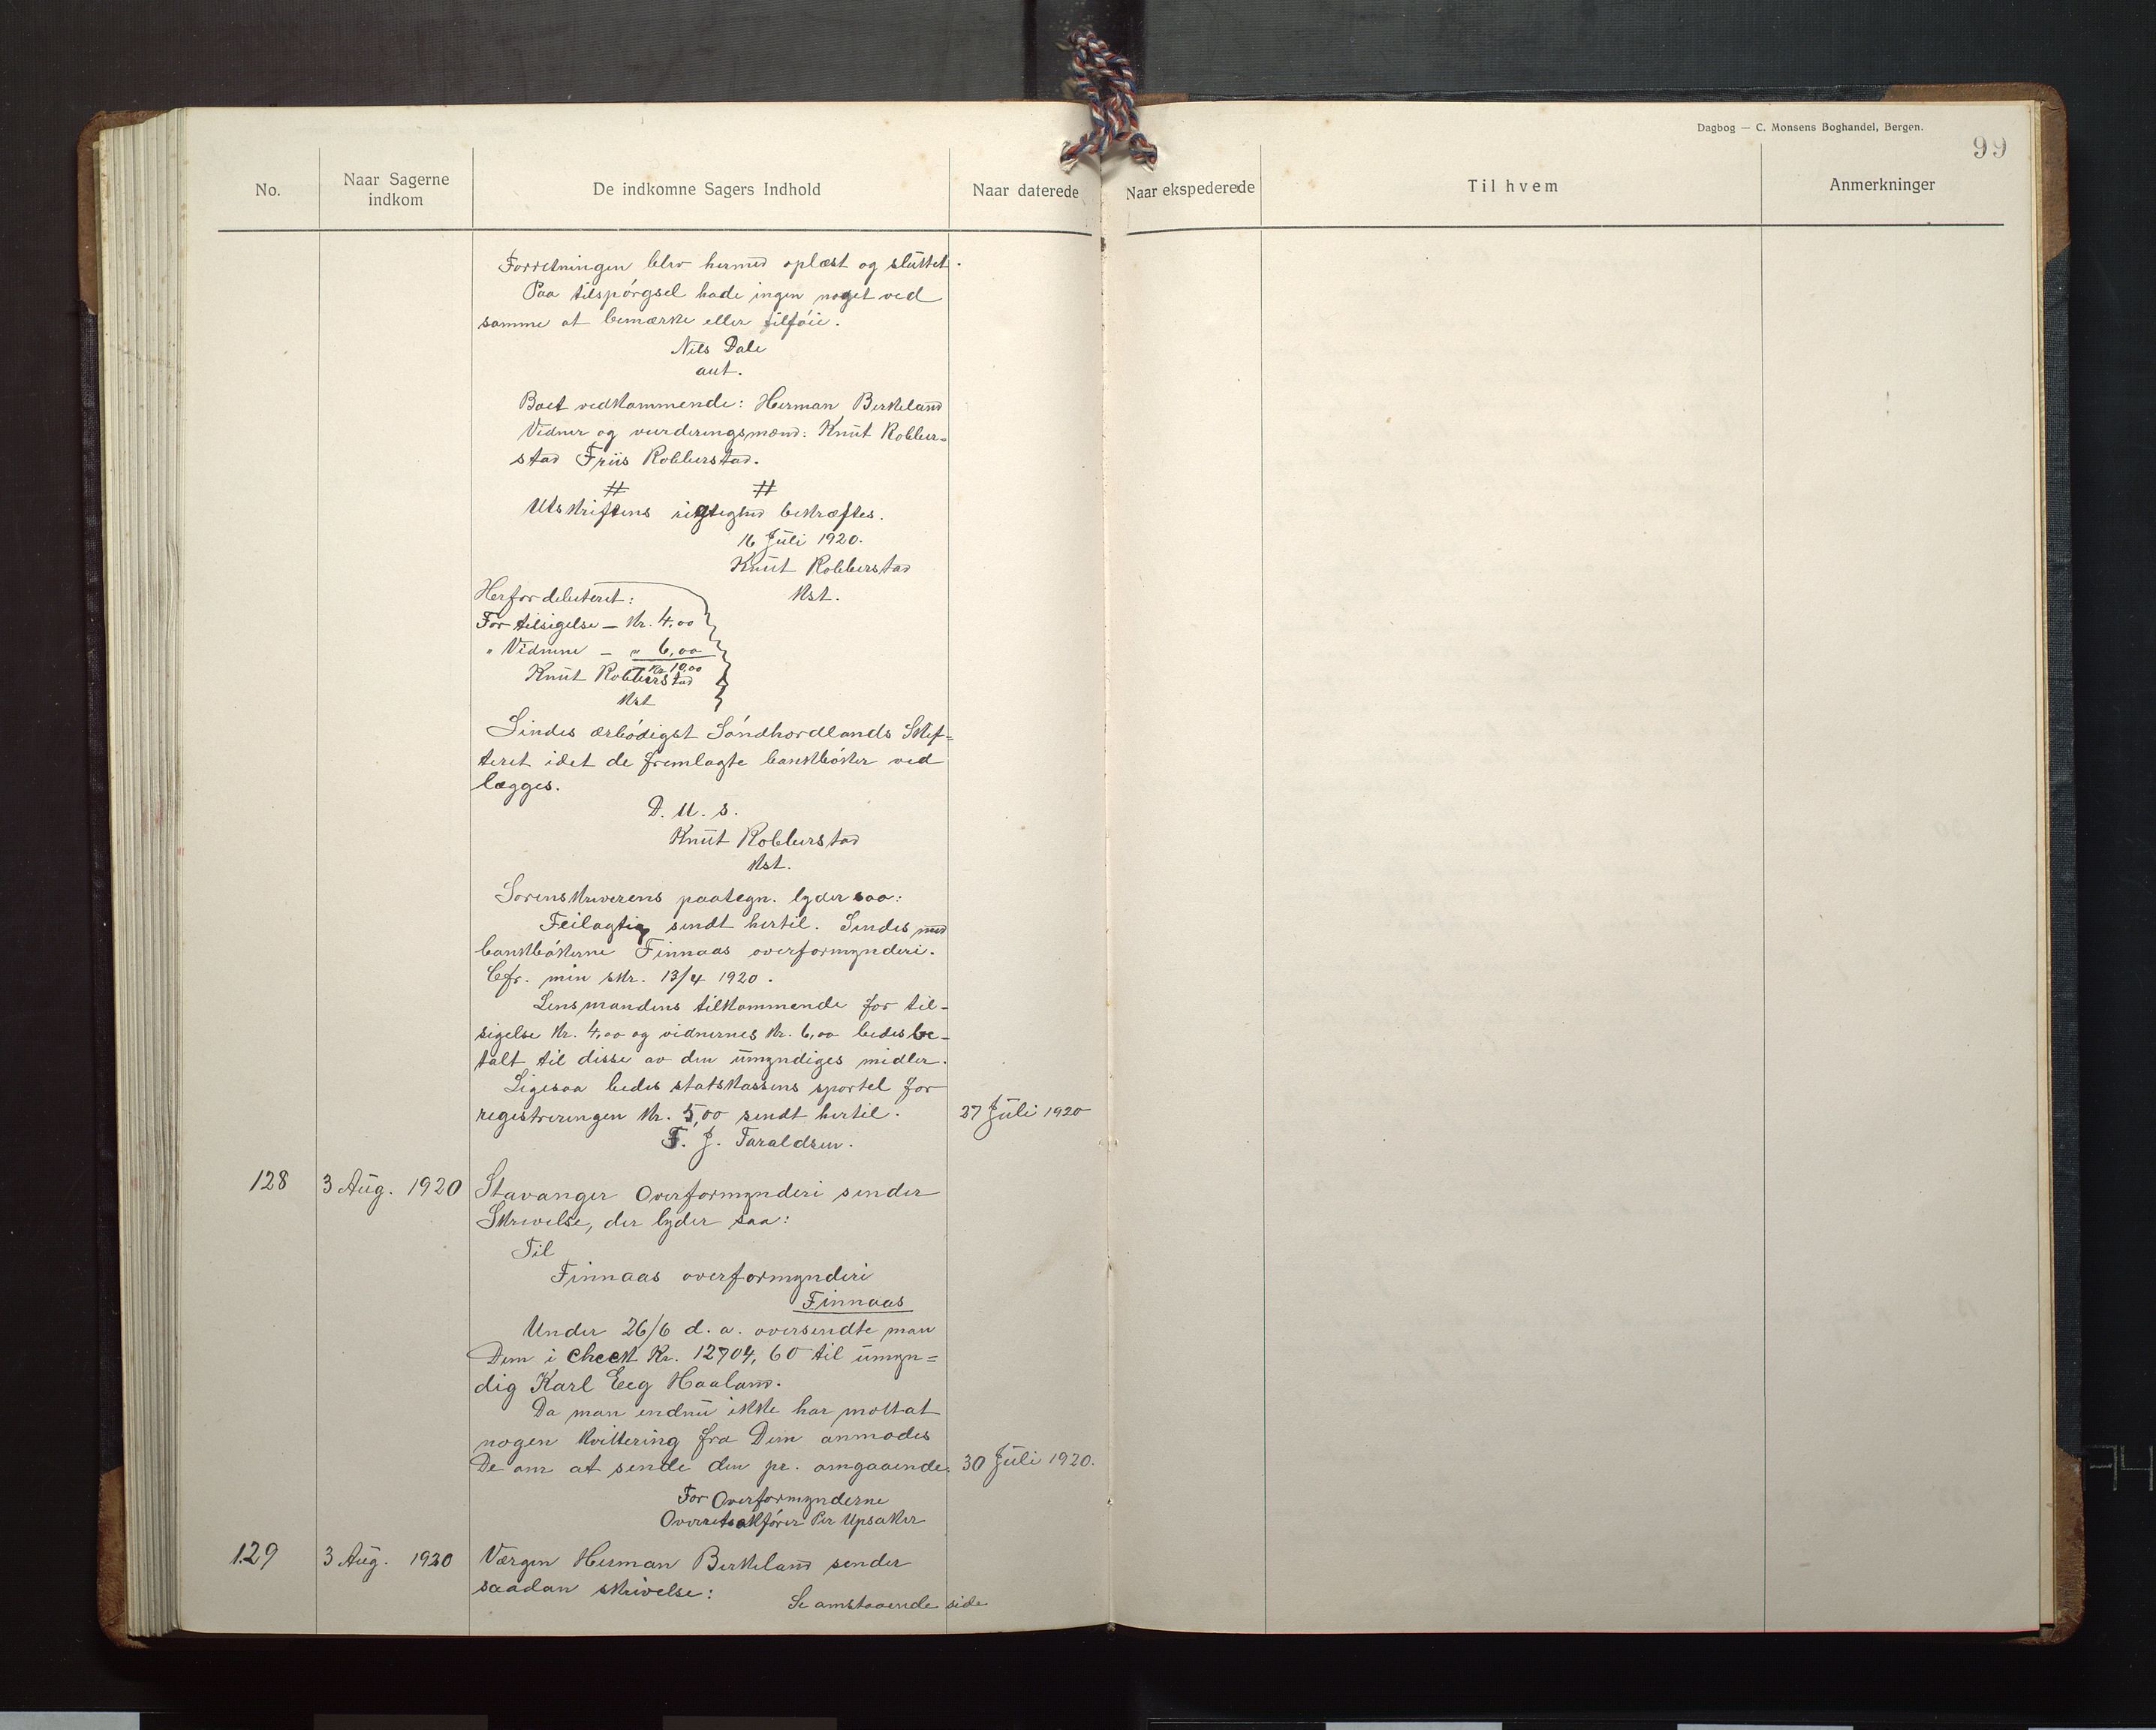 Dagbog — C. Monsens Boghandel, Bergen.
99
No.
Naar Sagerne indkom
De indkomne Sagers Indhold
Naar daterede
Naar ekspederede
Til hvem
Anmerkninger
Forretningen blev hermed oplæst og sluttet.
Paa tilspørgsel hade ingen noget ved
samme at bemærke eller tilføie.
Nils Dale
aut.
Boet vedkommende: Herman Birkeland
Vidner og vurderingsmænd: Knut Robber-
stad Friis Robberstad.
# #
Utskriftens rigtighed bekræftes.
16 Juli 1920.
Knut Robberstad
Kst.
Herfor debiteret:
For tilsigelse — Kr. 4,00
" Vidnene — " 6,00
Kr. 10,00
Knut Robberstad
Kst
Sendes ærbødigst Søndhordlands Skif=
teret idet de fremlagte bankbøker ved
lægges.
D. U. S.
Knut Robberstad
Kst.
Sorenskriverens paategn. lyder saa:
Feilagtig sendt hertil. Sendes med
bankbøkerne Finnaas overformynderi.
Cfr. min skr. 13/4 1920.
Lensmandens tilkommende for til-
sigelse Kr. 4,00 og vidnernes Kr. 6,00 bedes be-
talt til disse av den umyndiges midler.
Ligesaa bedes statskassens sportel for
registreringen Kr. 5,00 sendt hertil. 27 Juli 1920
F. J. Taraldsen.
128 3 Aug. 1920 Stavanger Overformynderi sender
Skrivelse, der lyder saa:
Til
Finnaas overformynderi
Finnaas
Under 26/6 d. a. oversendte man
Dem i check Kr. 12704,60 til umyn=
dig Karl Eeg Haaland.
Da man endnu ikke har mottat
nogen kvittering fra Dem anmodes
De om at sende den pr. omgaaende. 30 Juli 1920.
For Overformynderne
Overretssakfører Per Upsaker
129 3 Aug. 1920 Værgen Herman Birkeland sender
saadan skrivelse:
Se omstaaende side